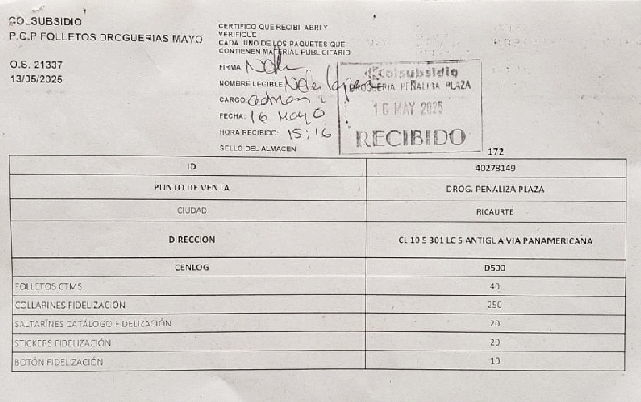 COLSUBSIDIO
P.O.P FOLLETOS DROGUERIAS MAYO
O.S. 21337
13/05/2025
CERTIFICO QUE RECIBI ABRI Y
VERIFIQUE
CADA UNO DE LOS PAQUETES QUE
CONTIENEN MATERIAL PUBLICITARIO
FIRMA:
NOMBRE LEGIBLE:
CARGO: admon
FECHA: 16 Mayo
HORA RECIBIDO: 15:16
SELLO DEL ALMACEN
colsubsidio
DROGUERIA PEÑALIZA PLAZA
16 MAY 2025
RECIBIDO
172
ID 40278149
PUNTO DE VENTA DROG. PENALIZA PLAZA
CIUDAD RICAURTE
DIRECCION CL 10 5 301 LC 5 ANTIGUA VIA PANAMERICANA
CENLOG D530
FOLLETOS CTMS 40
COLLARINES FIDELIZACIÓN 250
SALTARINES CATÁLOGO FIDELIZACIÓN 20
STICKERS FIDELIZACIÓN 20
BOTÓN FIDELIZACIÓN 10